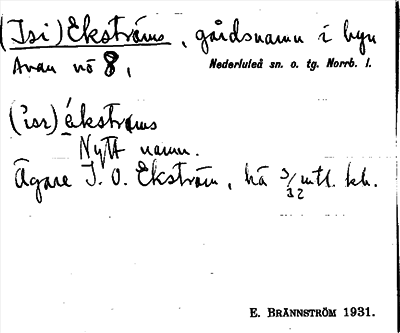 (Isi) Ekströms, gårdsnamn i byn
Avan nö 8, Nederluleå sn. o. tg. Norrb. l.
(isı) ékströms
Nytt namn.
Ägare J. O. Ekström, hä 3/32 mtl. kh.
E. BRÄNNSTRÖM 1931.